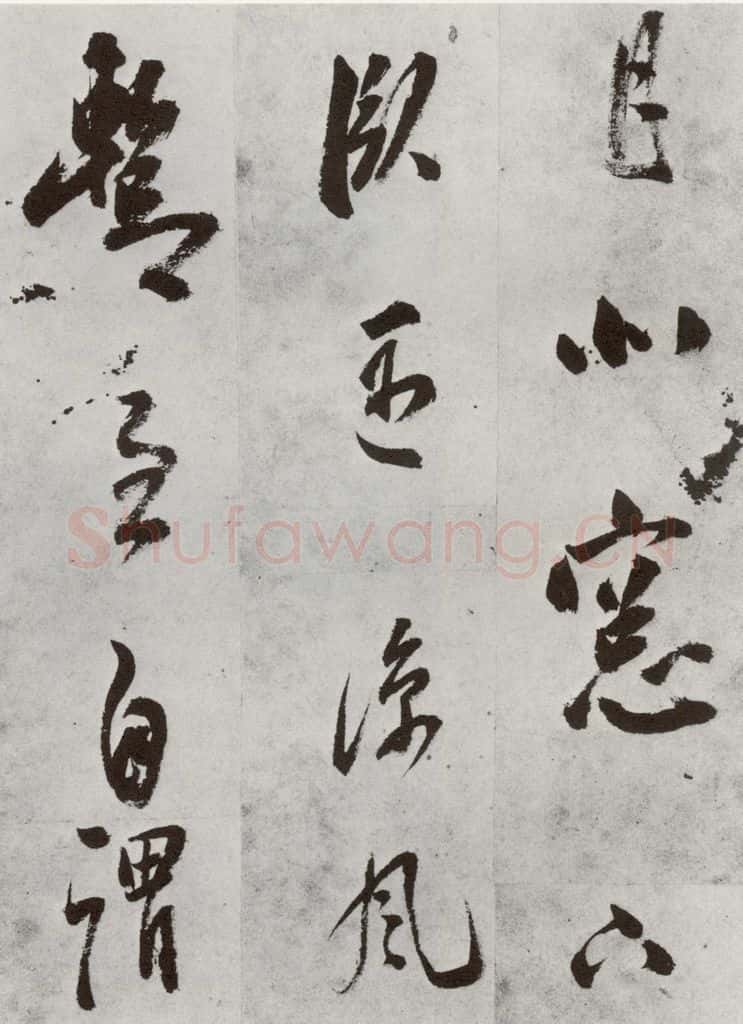 月北窻下
臥遇涼風
暫至自謂
Shufawang.CN